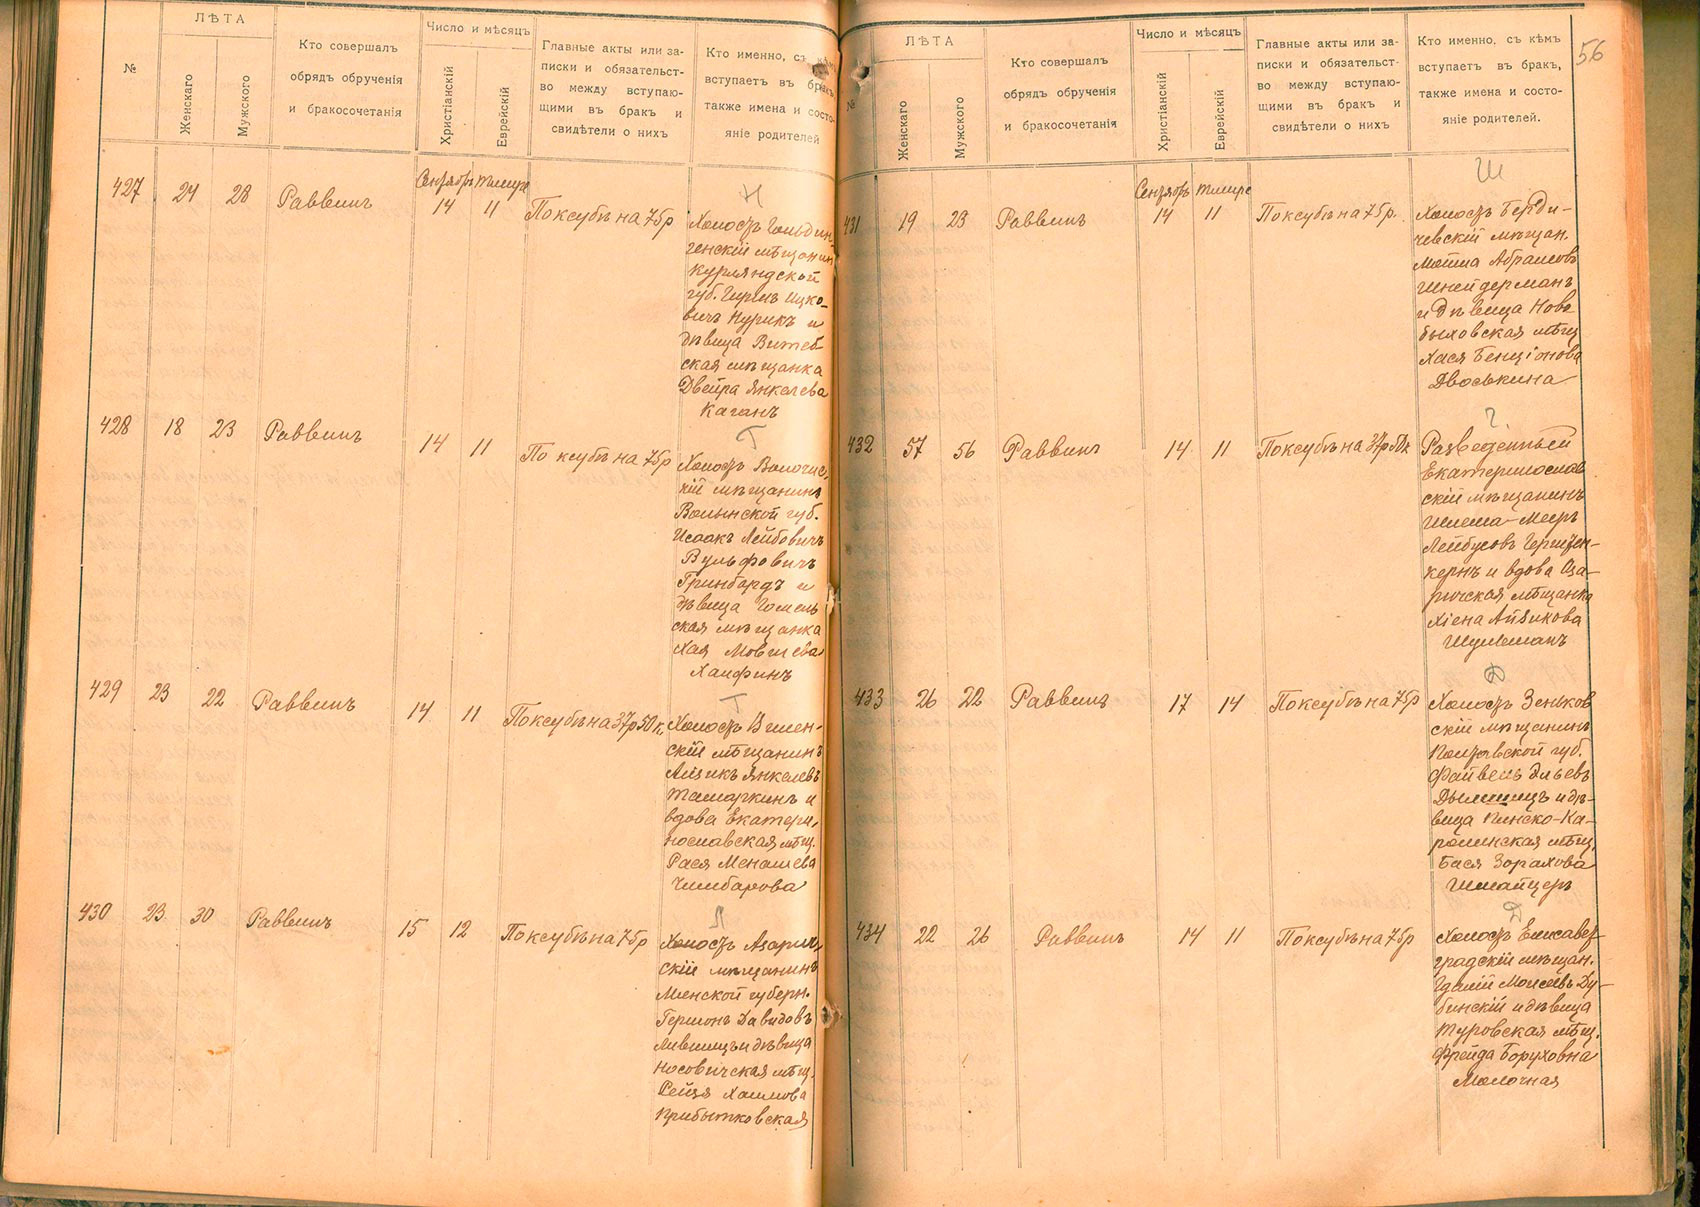 №
ЛѢТА
Женскаго
Мужского
Кто совершалъ
обрядъ обрученія
и бракосочетанія
Число и мѣсяцъ
Христіанскій
Еврейскій
Главные акты или за-
писки и обязательст-
во между вступаю-
щими въ бракъ и
свидѣтели о нихъ
Кто именно, съ кѣмъ
вступаетъ въ бракъ,
также имена и состо-
яніе родителей
427 24 28 Раввинъ
Сентябрь Тишре
14 11
По ксубѣ на 75 р
Н
Холостъ Гольдин-
генскій мѣщанин
Курляндской
губ. Гиршъ Ицко-
вичъ Нурикъ и
дѣвица Витеб
ская мѣщанка
Двейра Янкелева
Каганъ
428 18 23 Раввинъ
14 11
По ксубѣ на 75 р
Г
Холостъ Волочис,
кій мѣщанинъ
Волынской губ.
Исаакъ Лейбовичъ
Вульфовичъ
Гринбардъ и
дѣвица Гомель
ская мѣщанка
Хая Мовшева
Хаифинъ
429 23 22 Раввинъ
14 11
По ксубѣ на 37 р 50 к.
Т
Холостъ Вилен-
скій мѣщанинъ
Айзикъ Янкелевъ
Тамаркинъ и
вдова Екатери,
нославская мѣщ.
Рася Менашева
Чимбарова
430 23 30 Раввинъ
15 12
По ксубѣ на 75 р
Л
Холостъ Азарич,
скій мѣщанинъ
Минской губерн.
Гершонъ Давидовъ
Лившицъ и дѣвица
Носовичская мѣщ.
Рейця Хаимова
Прибытковская
56
№
ЛѢТА
Женскаго
Мужского
Кто совершалъ
обрядъ обрученія
и бракосочетанія
Число и мѣсяцъ
Христіанскій
Еврейскій
Главные акты или за-
писки и обязательст-
во между вступаю-
щими въ бракъ и
свидѣтели о нихъ
Кто именно, съ кѣмъ
вступаетъ въ бракъ,
также имена и состо-
яніе родителей.
431 19 23 Раввинъ
Сентябрь Тишре
14 11
По ксубѣ на 75 р.
Ш
Холостъ Берди-
чевскій мѣщан.
Мошка Абрамовъ
Шнейдерманъ
и дѣвица Ново
быховская мѣщ
Хася Бенціонова
Двоськина
432 57 56 Раввинъ
14 11
По ксубѣ на 37 р 50 к
Г
Разведенный
Екатеринослав
скій мѣщанинъ
Шлема-Мееръ
Лейбусовъ Гершзен-
кернъ и вдова Оза-
ричская мѣщанка
Хіена Айзикова
Шулеманъ
433 26 22 Раввинъ
17 14
По ксубѣ на 75 р
Д
Холостъ Зеньков
скій мѣщанинъ
Полтавской губ.
Файвель Эльевъ
Дымшицъ и дѣ-
вица Пинско-Ка-
ролинская мѣщ.
Бася Зорахова
Шпайцеръ
434 22 26 Раввинъ
14 11
По ксубѣ на 75 р
Д
Холостъ Елисавет
градскій мѣщан.
Гдалій Моисеевъ Ду-
бинскій и дѣвица
Туровская мѣщ.
Фрейда Боруховна
Молочная